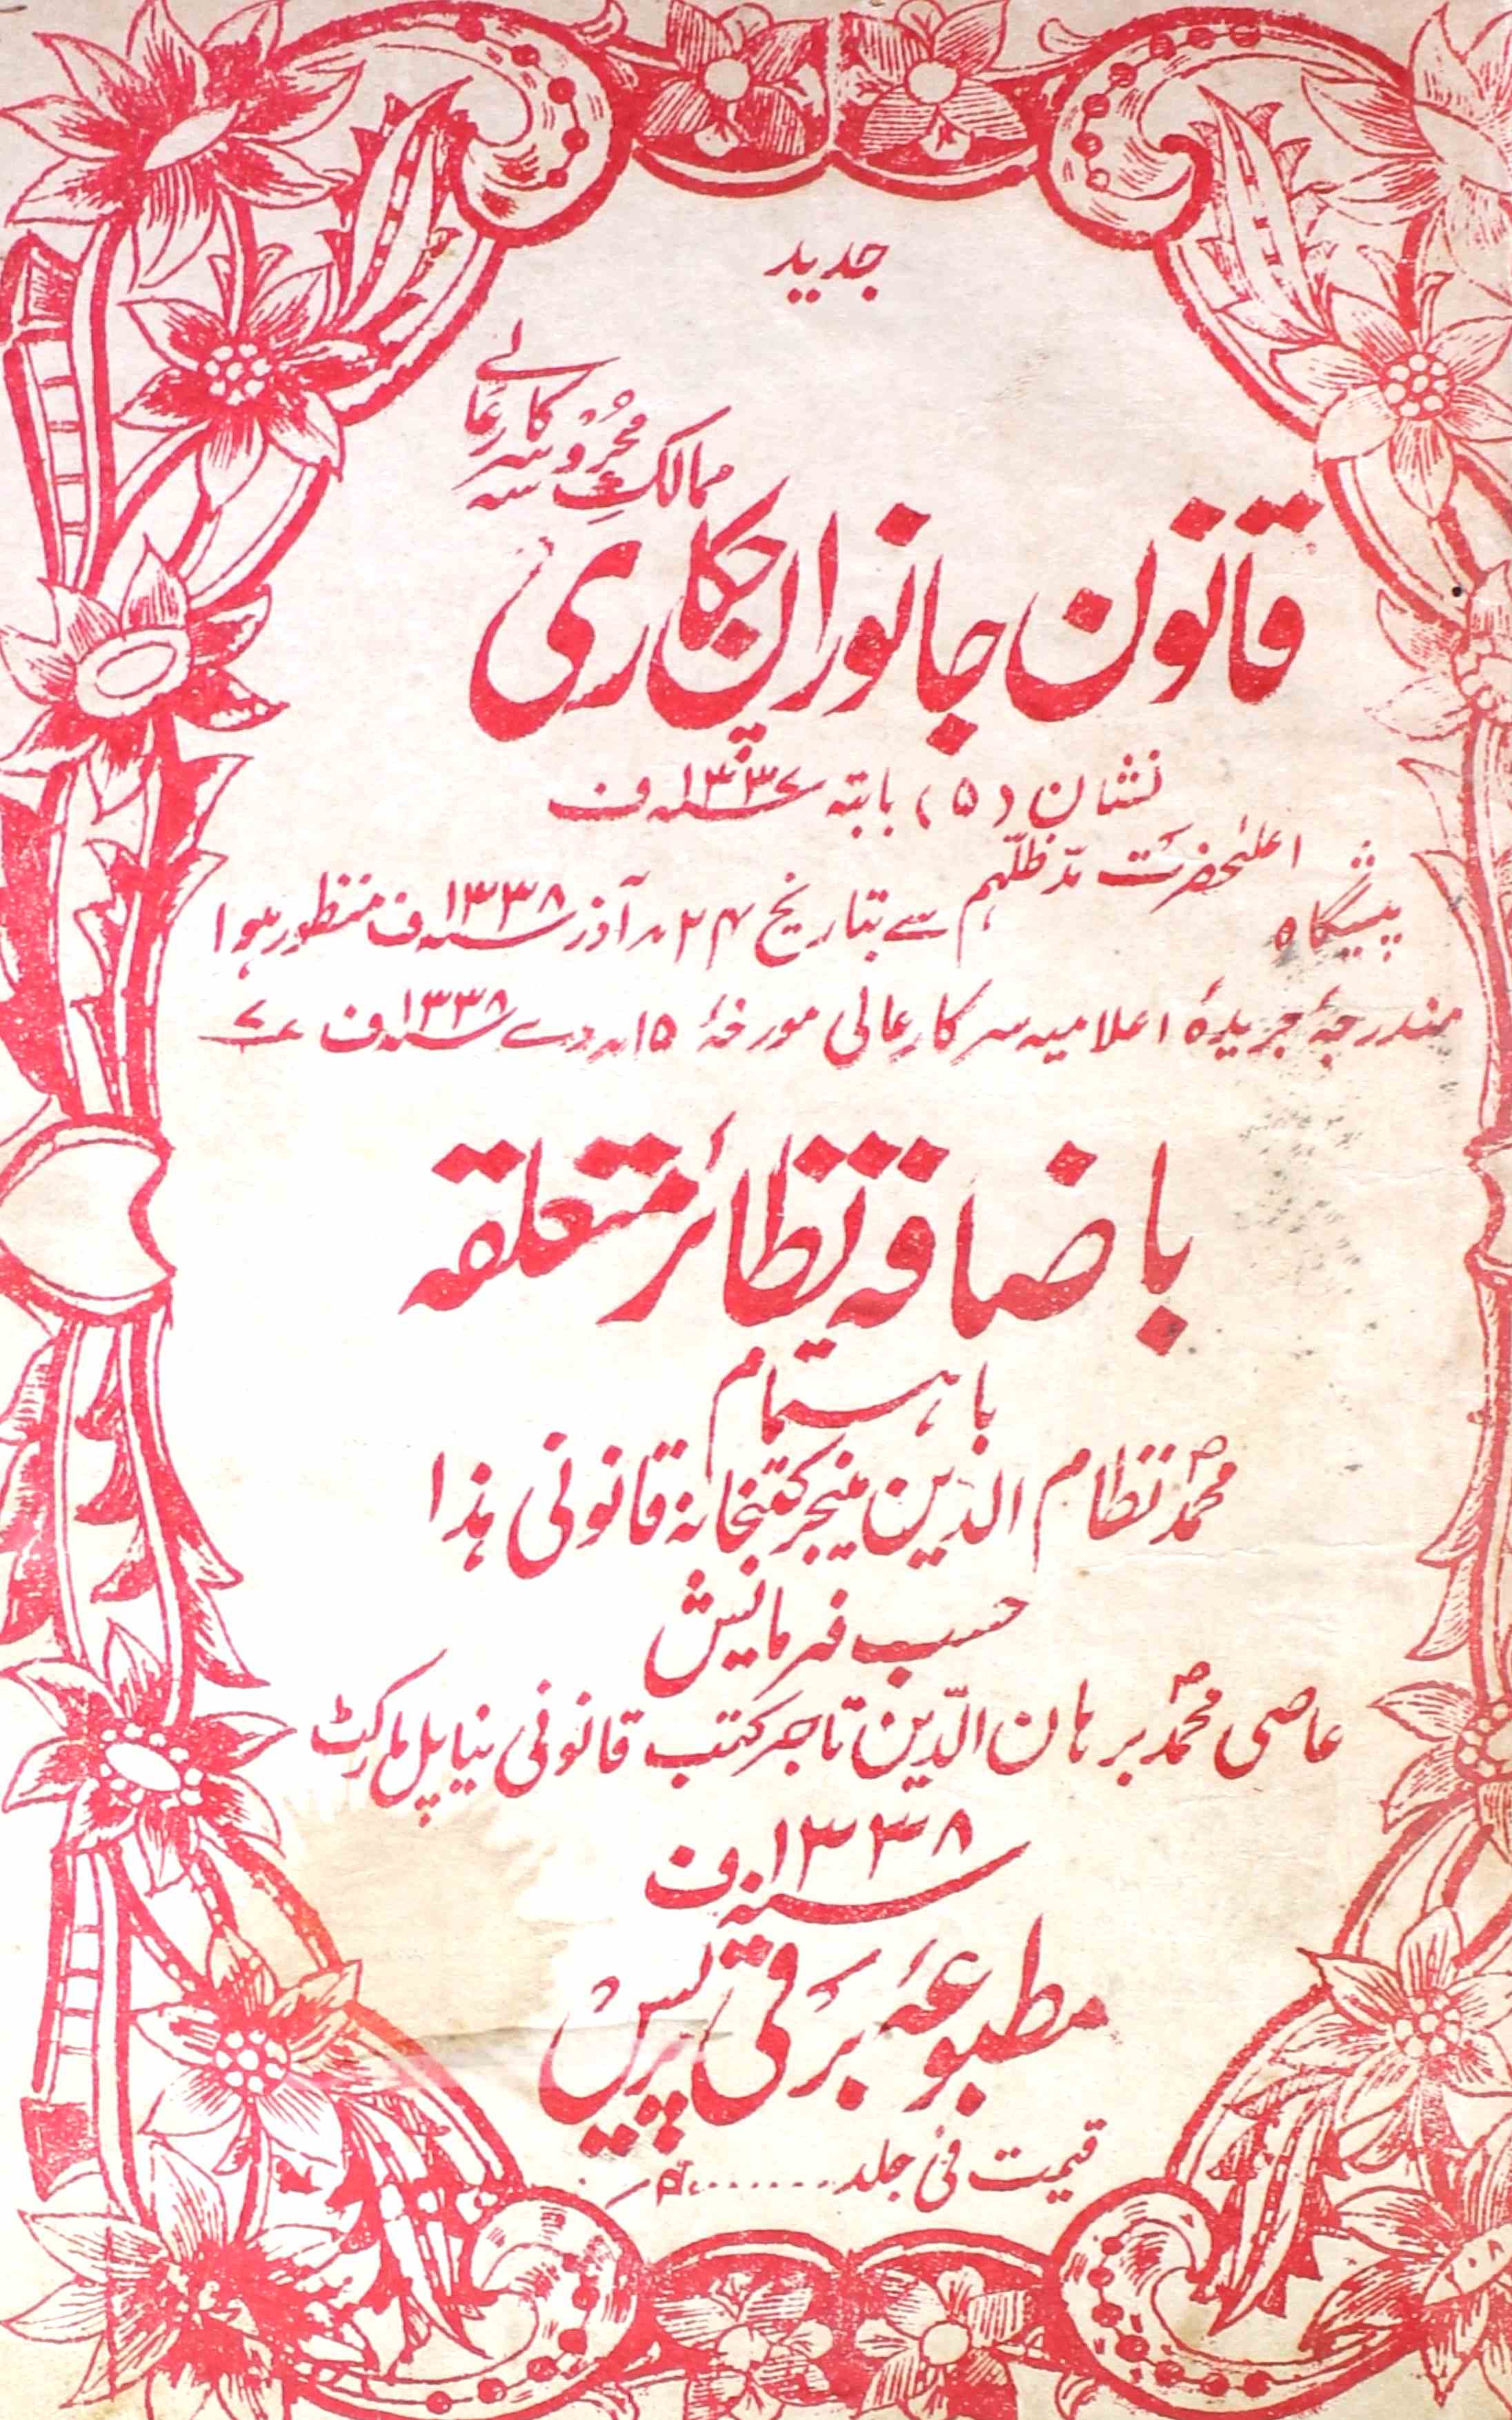 جدید
ممالک محروسہ سرکار عالی
قانون جانوران شکاری
نشان (۵) بابتہ ۱۳۳۷ ف
پیشگاہ اعلیٰحضرت مدّ ظلّہم سے بتاریخ ۲۴؍ آذر ۱۳۳۸ ف منظور ہوا
مندرجۂ جریدۂ اعلامیہ سرکار عالی مورخۂ ۱۵؍ دے ۱۳۳۸ ف
باضافہ نظائر متعلقہ
باہتمام
محمدؐ نظام الدین منیجر کتبخانۂ قانونی ہذا
حسب فرمایش
عاصی محمدؐ برہان الدّین تاجر کتب قانونی نیا پل مارکٹ
سنہ ۱۳۳۸ ف
مطبوعۂ برقی پریس
قیمت فی جلد